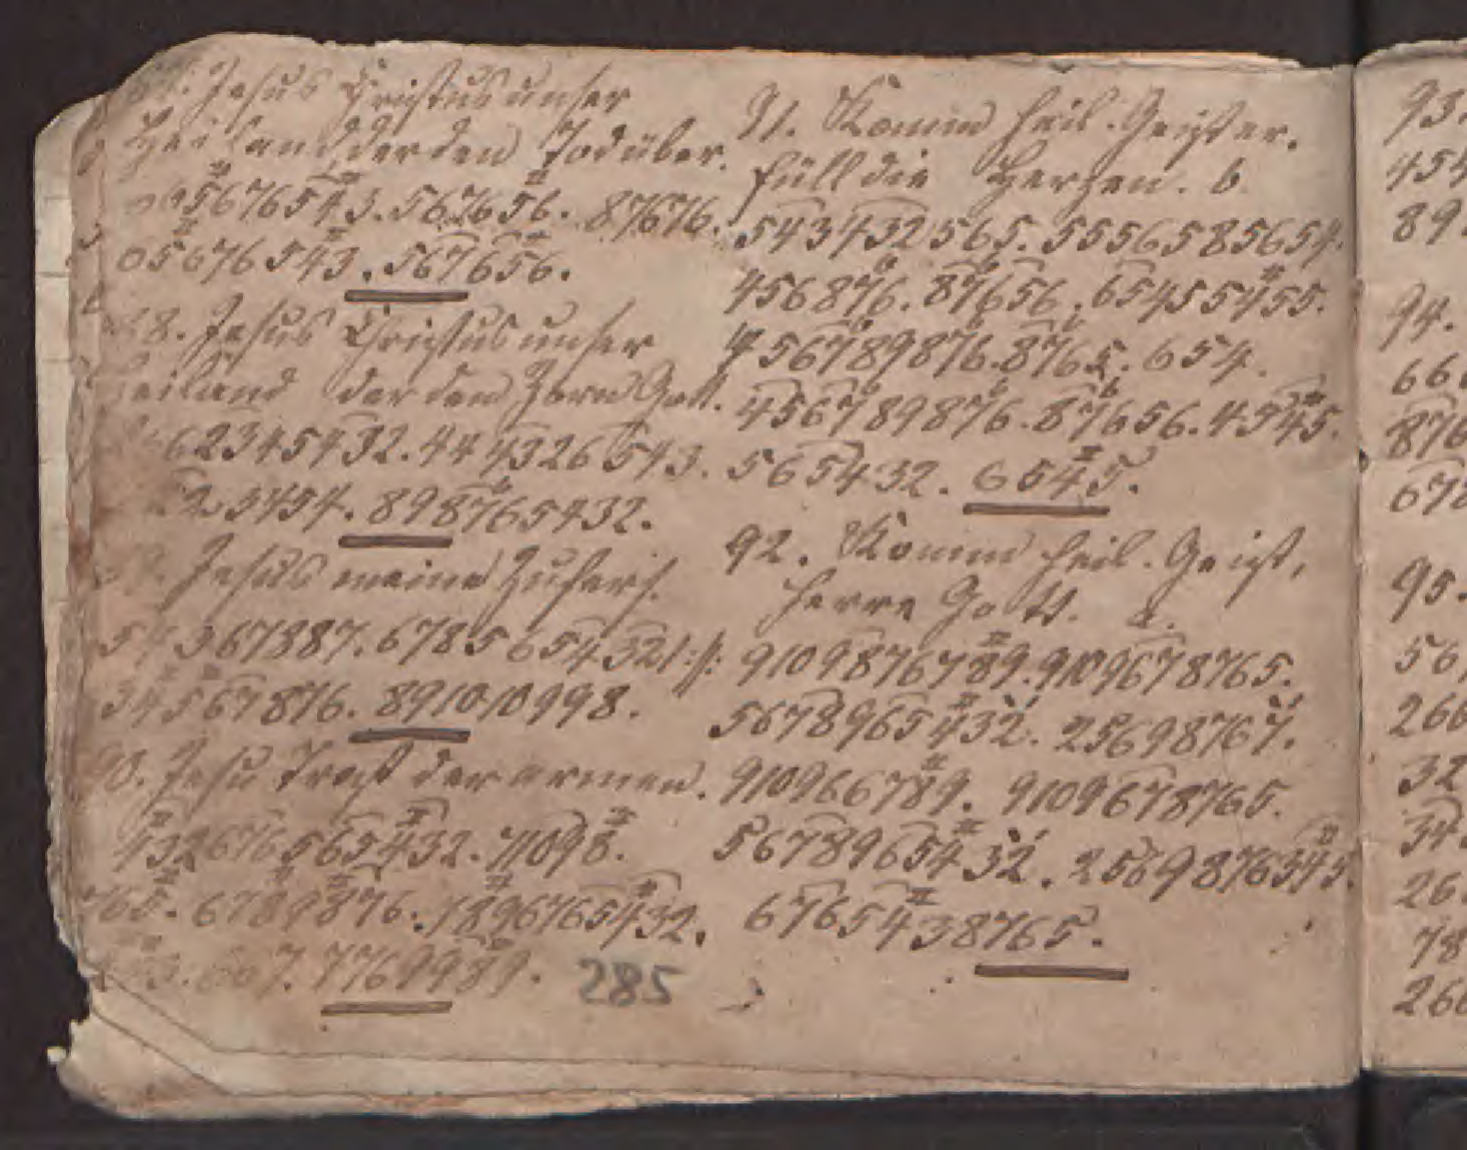 Jesus Christus unser
Heiland der den Tod über.
5676543. 562656. 87676.
05676543. 567656.
88. Jesus Christus unser
Heiland der den Zorn Gott.
62345432. 444326543.
3454. 898765432.
Jesus meine Zufers.
367887. 6785654321 :||:
34567876. 891010998.
90. Jesu Trost der armen.
432676565432. 11098.
765. 6789876. 7896765432.
67. 7769989.
285
91. Komm heil. Geist er.
füll die Herzen. b
543432565. 5556585654.
456876. 87656. 65455455.
456789876. 8765. 654.
456789876. 87656. 4545.
565432. 6545.
92. Komm heil. Geist,
Herre Gott. a.
9109876789. 9109678765.
56789654 32. 25698767.
910966789. 9109678765.
5678965432. 2569876345.
6765438765.
93.
454
89
94.
66
876
678
95.
56
266
32
34
26
78
266